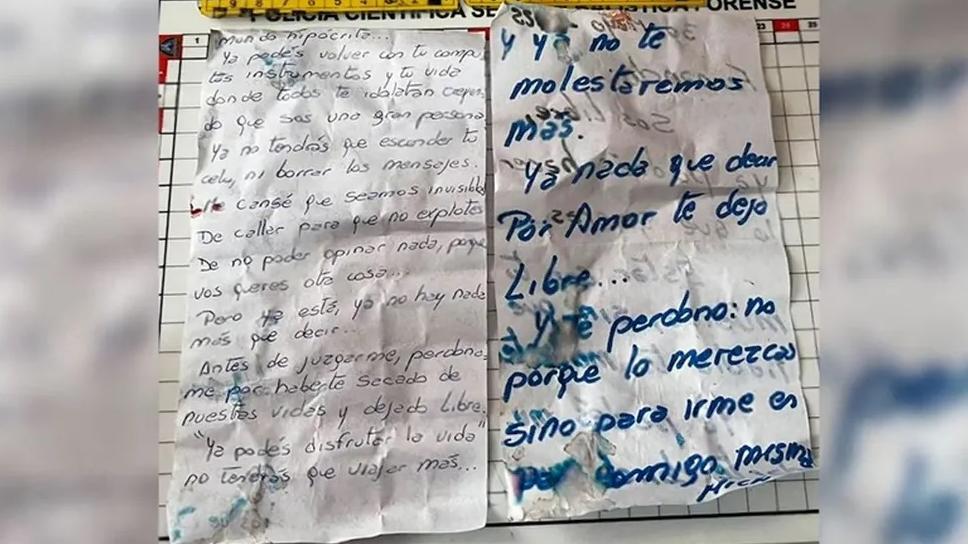 POLICIA CIENTIFICA
ORENSE
mundo hipócrita...
Ya podés volver con tu compu,
tus instrumentos y tu vida
donde todos te idolatran creyen
do que sos una gran persona.
Ya no tendrás que esconder tu
celu, ni borrar los mensajes.
Me cansé que seamos invisibles
De callar para que no explotes
De no poder opinar nada, porque
vos querés otra cosa...
Pero ya está, ya no hay nada
más que decir...
Antes de juzgarme, perdona
me por haberte sacado de
nuestras vidas y dejado libre.
"Ya podés disfrutar la vida"
no tendrás que viajar más...
Y ya no te
molestaremos
más.
Ya nada que decir
Por Amor te dejo
Libre...
y te perdono: no
porque lo merezcas
sino para irme en
paz conmigo misma